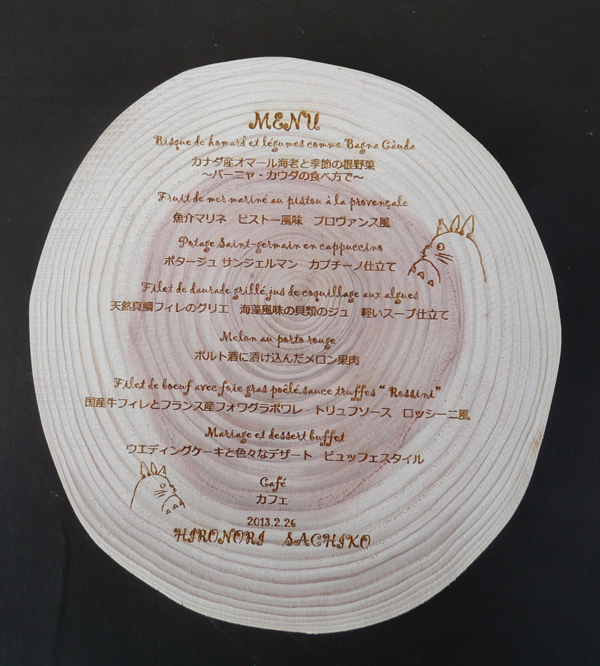 MENU
Bisque de homard et légumes comme Bagna Càuda
カナダ産オマール海老と季節の根野菜
～バーニャ・カウダの食べ方で～
Fruit de mer mariné au pistou à la provençale
魚介マリネ ピストー風味 プロヴァンス風
Potage Saint-germain en cappuccino
ポタージュ サンジェルマン カプチーノ仕立て
Filet de daurade grillé,jus de coquillage aux algues
天然真鯛フィレのグリエ 海藻風味の貝類のジュ 軽いスープ仕立て
Melon au porto rouge
ポルト酒に漬け込んだメロン果肉
Filet de boeuf avec foie gras poêlé,sauce truffes “Rossini”
国産牛フィレとフランス産フォワグラポワレ トリュフソース ロッシーニ風
Mariage et dessert buffet
ウエディングケーキと色々なデザート ビュッフェスタイル
Café
カフェ
2013.2.26
HIRONORI SACHIKO